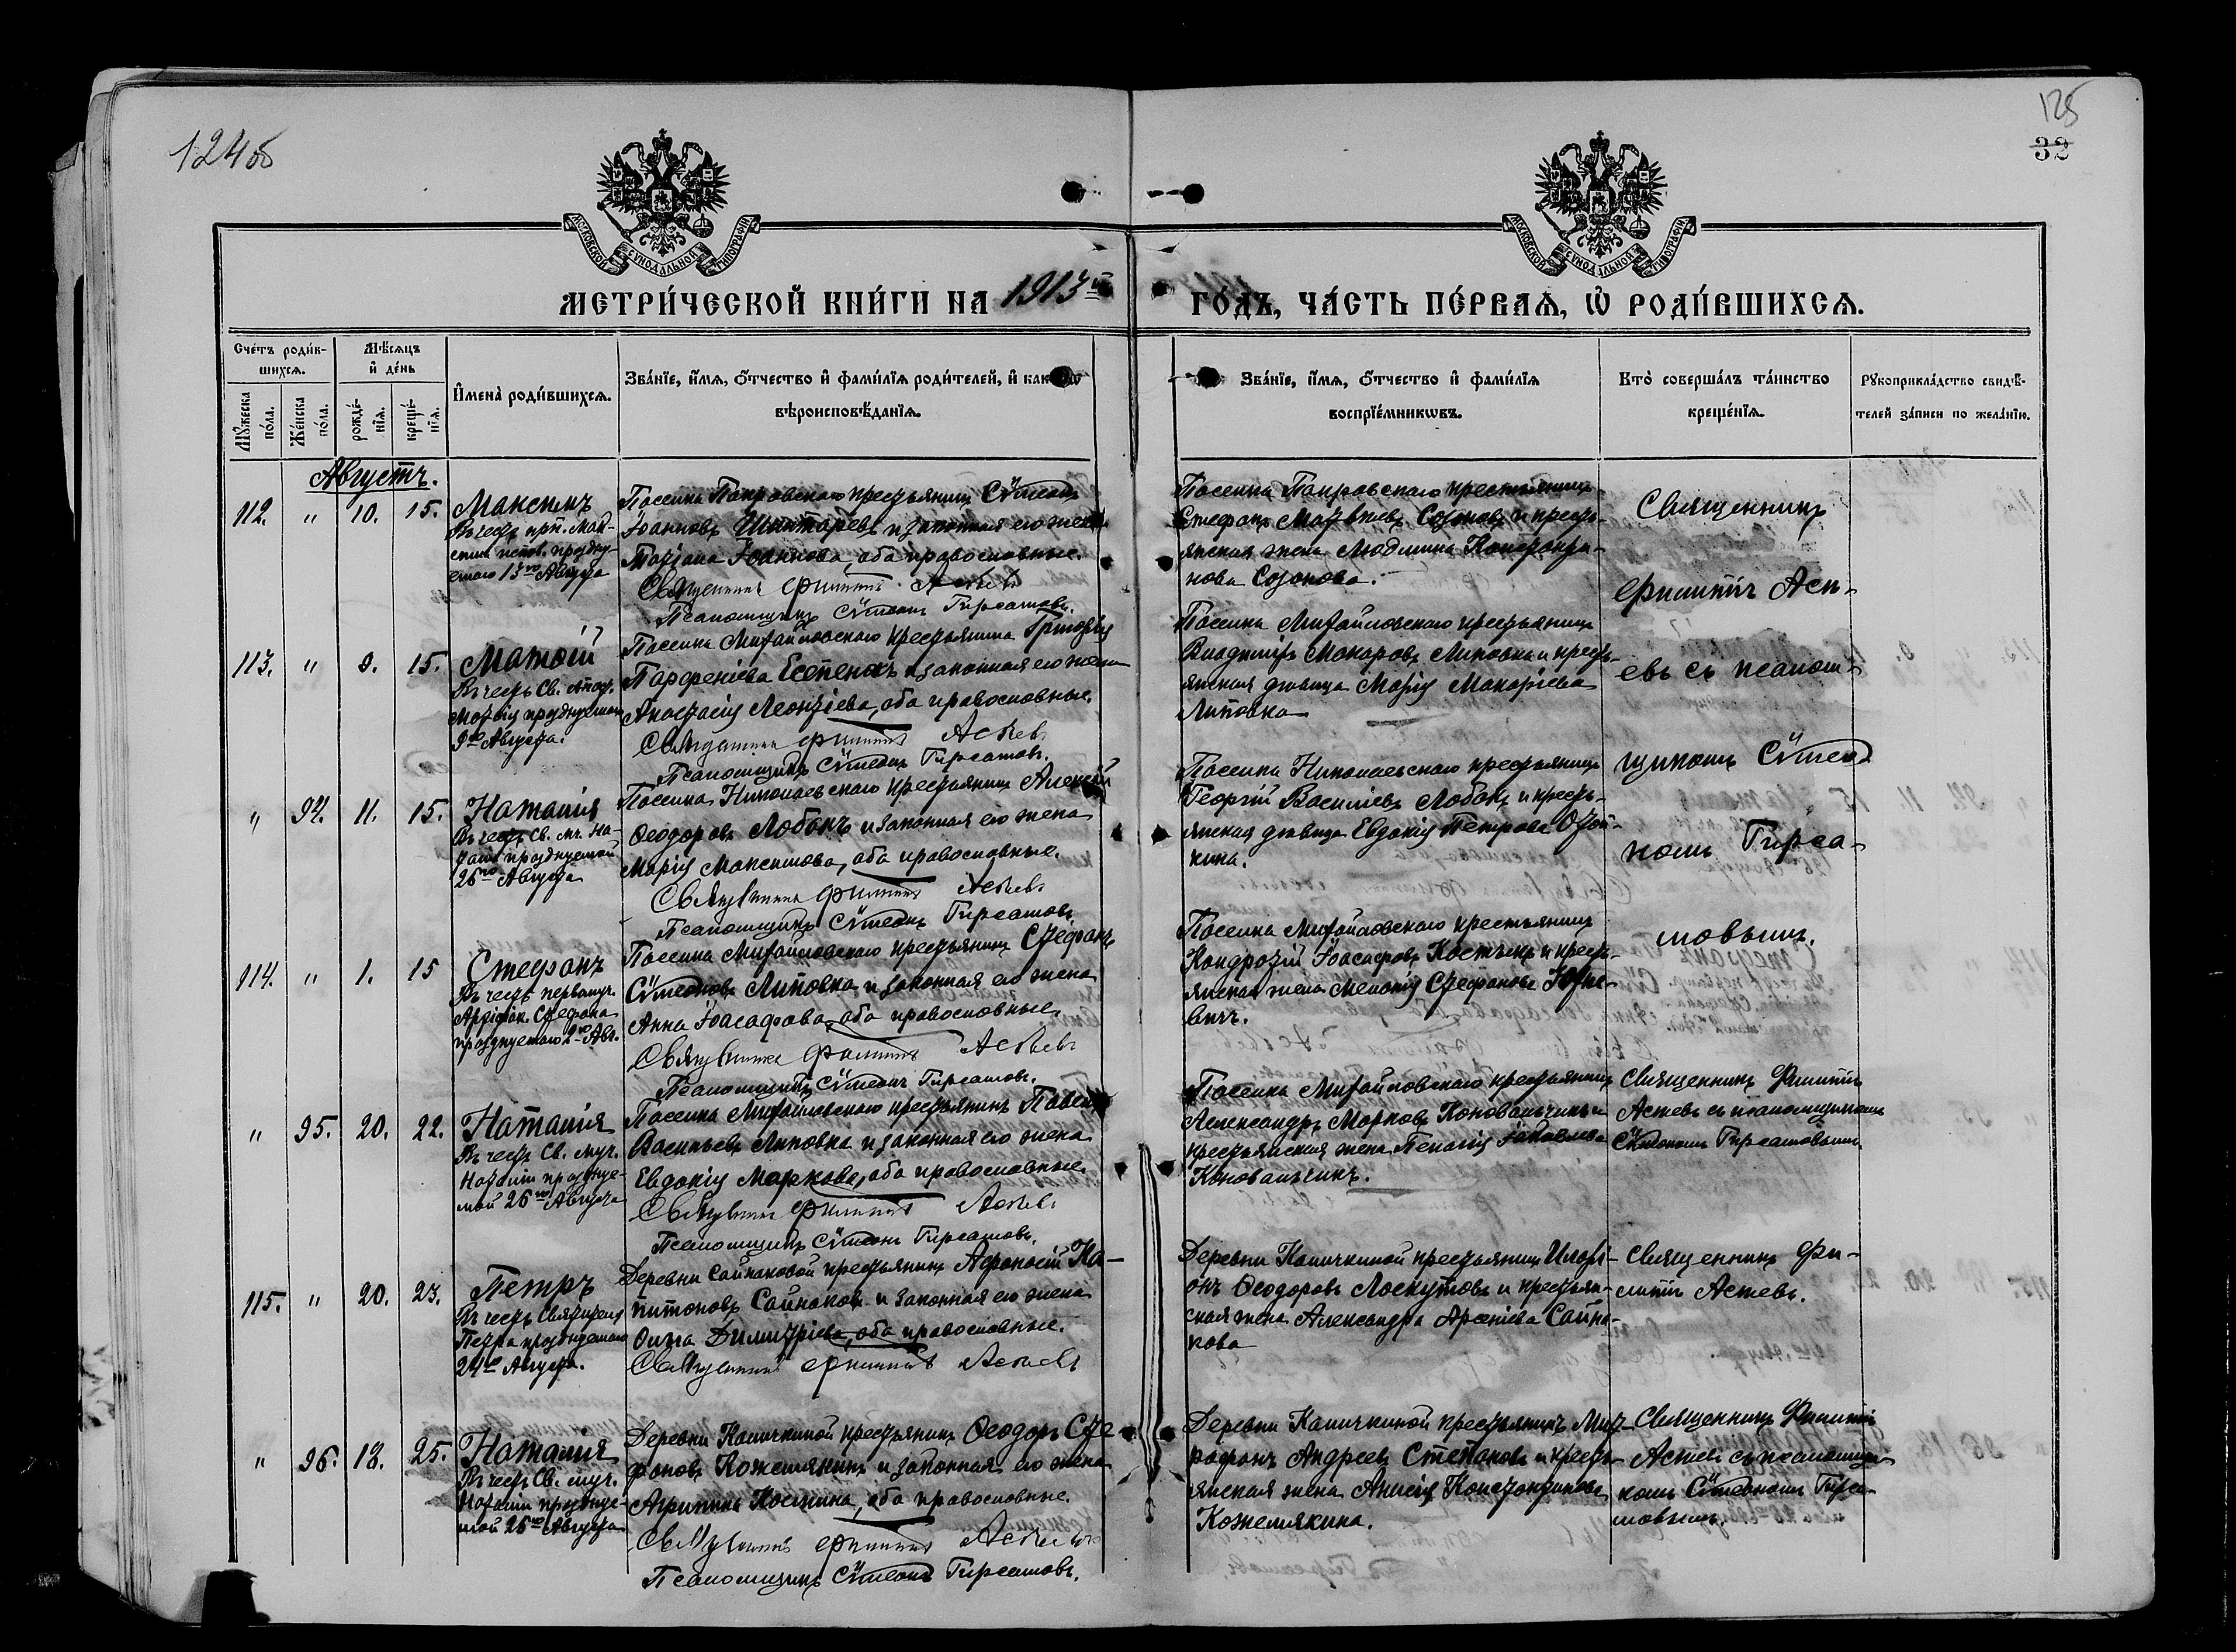 124об
125
32
МОСКОВСКОЙ СѴНОДАЛЬНОЙ ТИПОГРАФІИ
МОСКОВСКОЙ СѴНОДАЛЬНОЙ ТИПОГРАФІИ
МЕТРИ́ЧЕСКОЙ КНИ́ГИ НА 1913й ГО́ДЪ, ЧА́СТЬ ПЕ́РВАѦ, Ѡ҆ РОДИ́ВШИХСѦ.
Сче́тъ роди́в-
шихсѧ.
Мѣ́сѧцъ
и҆ де́нь
Мꙋ́жеска
по́ла.
Же́нска
по́ла.
рожде́-
нїѧ.
креще́-
нїѧ.
И҆мена̀ роди́вшихсѧ.
Зва́нїе, и҆́мѧ, ѻ҆́тчество и҆ фами́лїѧ роди́телей, и҆
вѣроисповѣ́данїѧ.
Зва́нїе, и҆́мѧ, ѻ҆́тчество и҆ фами́лїѧ
воспрїе́мникѡвъ.
Кто̀ соверша́лъ та́инство
креще́нїѧ.
Рꙋкоприкла́дство свидѣ́-
телей за́писи по жела́нїю.
Августъ.
112. " 10. 15.
Максимъ
Въ честь прп. Мак-
сима испов. праздну-
емаго 13го Августа
Поселка Покровскаго крестьянинъ Сѵмеонъ
Іоанновъ Шинкаревъ и законная его жена
Татіана Іоаннова, оба православные.
Священникъ Филиппъ Асѣевъ
Псаломщикъ Сѵмеонъ Гирсамовъ.
Поселка Покровскаго крестьянинъ
Стефанъ Матвѣевъ Созоновъ и кресть-
янская жена Людмила Константи-
нова Созонова.
Священникъ
Филиппъ Асѣ-
евъ съ псалом-
щикомъ Сѵмео-
номъ Гирса-
мовымъ.
113. " 9. 15.
Матѳій
Въ честь Св. Апост.
Матѳія празднуемаго
9го Августа.
Поселка Михайловскаго крестьянинъ Григорій
Парфеніевъ Есепенокъ и законная его жена
Анастасія Леонтіева, оба православные.
Священникъ Филиппъ Асѣевъ
Псаломщикъ Сѵмеонъ Гирсамовъ.
Поселка Михайловскаго крестьянинъ
Владиміръ Макаровъ Липовка и кресть-
янская дѣвица Марія Макаріева
Липовка
" 94. 11. 15.
Наталія
Въ честь Св. мч. На-
таліи празднуемой
26го Августа
Поселка Николаевскаго крестьянинъ Алексій
Ѳеодоровъ Лобокъ и законная его жена
Марія Максимова, оба православные.
Священникъ Филиппъ Асѣевъ
Псаломщикъ Сѵмеонъ Гирсамовъ.
Поселка Николаевскаго крестьянинъ
Георгій Василіевъ Лобокъ и кресть-
янская дѣвица Евдокія Петрова
114. " 1. 15
Стефанъ
Въ честь первомуч.
Архидіак. Стефана
празднуемаго 2го Авг.
Поселка Михайловскаго крестьянинъ Стефанъ
Сѵмеоновъ Липовка и законная его жена
Анна Іоасафова, оба православные.
Священникъ Филиппъ Асѣевъ
Псаломщикъ Сѵмеонъ Гирсамовъ.
Поселка Михайловскаго крестьянинъ
Кондратій Іоасафовъ Костыкъ и кресть-
янская жена Меланія Стефанова
" 95. 20. 22.
Наталія
Въ честь Св. муч.
Наталіи праздну-
мой 26го Августа
Поселка Михайловскаго крестьянинъ Павелъ
Васильевъ Липовка и законная его жена
Евдокія Маркова, оба православные.
Священникъ Филиппъ Асѣевъ
Псаломщикъ Сѵмеонъ Гирсамовъ.
Поселка Михайловскаго крестьянинъ
Александръ Марковъ Коновальчикъ и
крестьянская жена Пелагія Іаковлева
Коновальчикъ.
Священникъ Филиппъ
Асѣевъ съ псаломщикомъ
Сѵмеономъ Гирсамовымъ.
115. " 20. 23.
Петръ
Въ честь Святителя
Петра празднуемаго
24го Августа.
Деревни Сайнаковой крестьянинъ Афанасій Ка-
питоновъ Сайнаковъ и законная его жена
Ольга Димитріева, оба православные.
Священникъ Филиппъ Асѣевъ
Деревни Каличкиной крестьянинъ Иларі-
онъ Ѳеодоровъ Лоскутовъ и крестьян-
ская жена Александра Арсеніева Сайна-
кова
Священникъ Фи-
липпъ Асѣевъ.
" 96. 18. 25.
Наталія
Въ честь Св. муч.
Наталіи праздну-
мой 26го Августа
Деревни Каличкиной крестьянинъ Ѳеодоръ Сте-
фановъ Кожемякинъ и законная его жена
Агрипина Космина, оба православные.
Священникъ Филиппъ Асѣевъ
Псаломщикъ Сѵмеонъ Гирсамовъ.
Деревни Каличкиной крестьянинъ Мит-
рофанъ Андреевъ Степановъ и кресть-
янская жена Анисія Константинова
Кожемякина.
Священникъ Филиппъ
Асѣевъ съ псаломщи-
комъ Сѵмеономъ Гирса-
мовымъ.